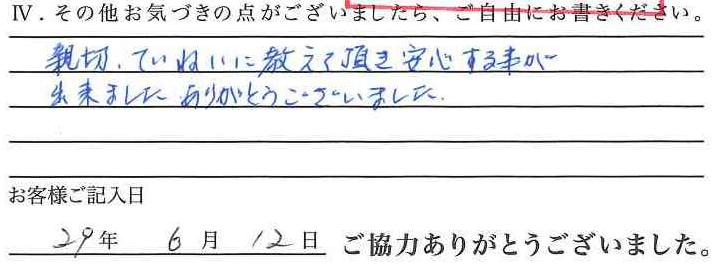 Ⅳ．その他お気づきの点がございましたら、ご自由にお書きください。
親切、ていねいに教えて頂き安心する事が
出来ました ありがとうございました.
お客様ご記入日
29年 6月12日 ご協力ありがとうございました。